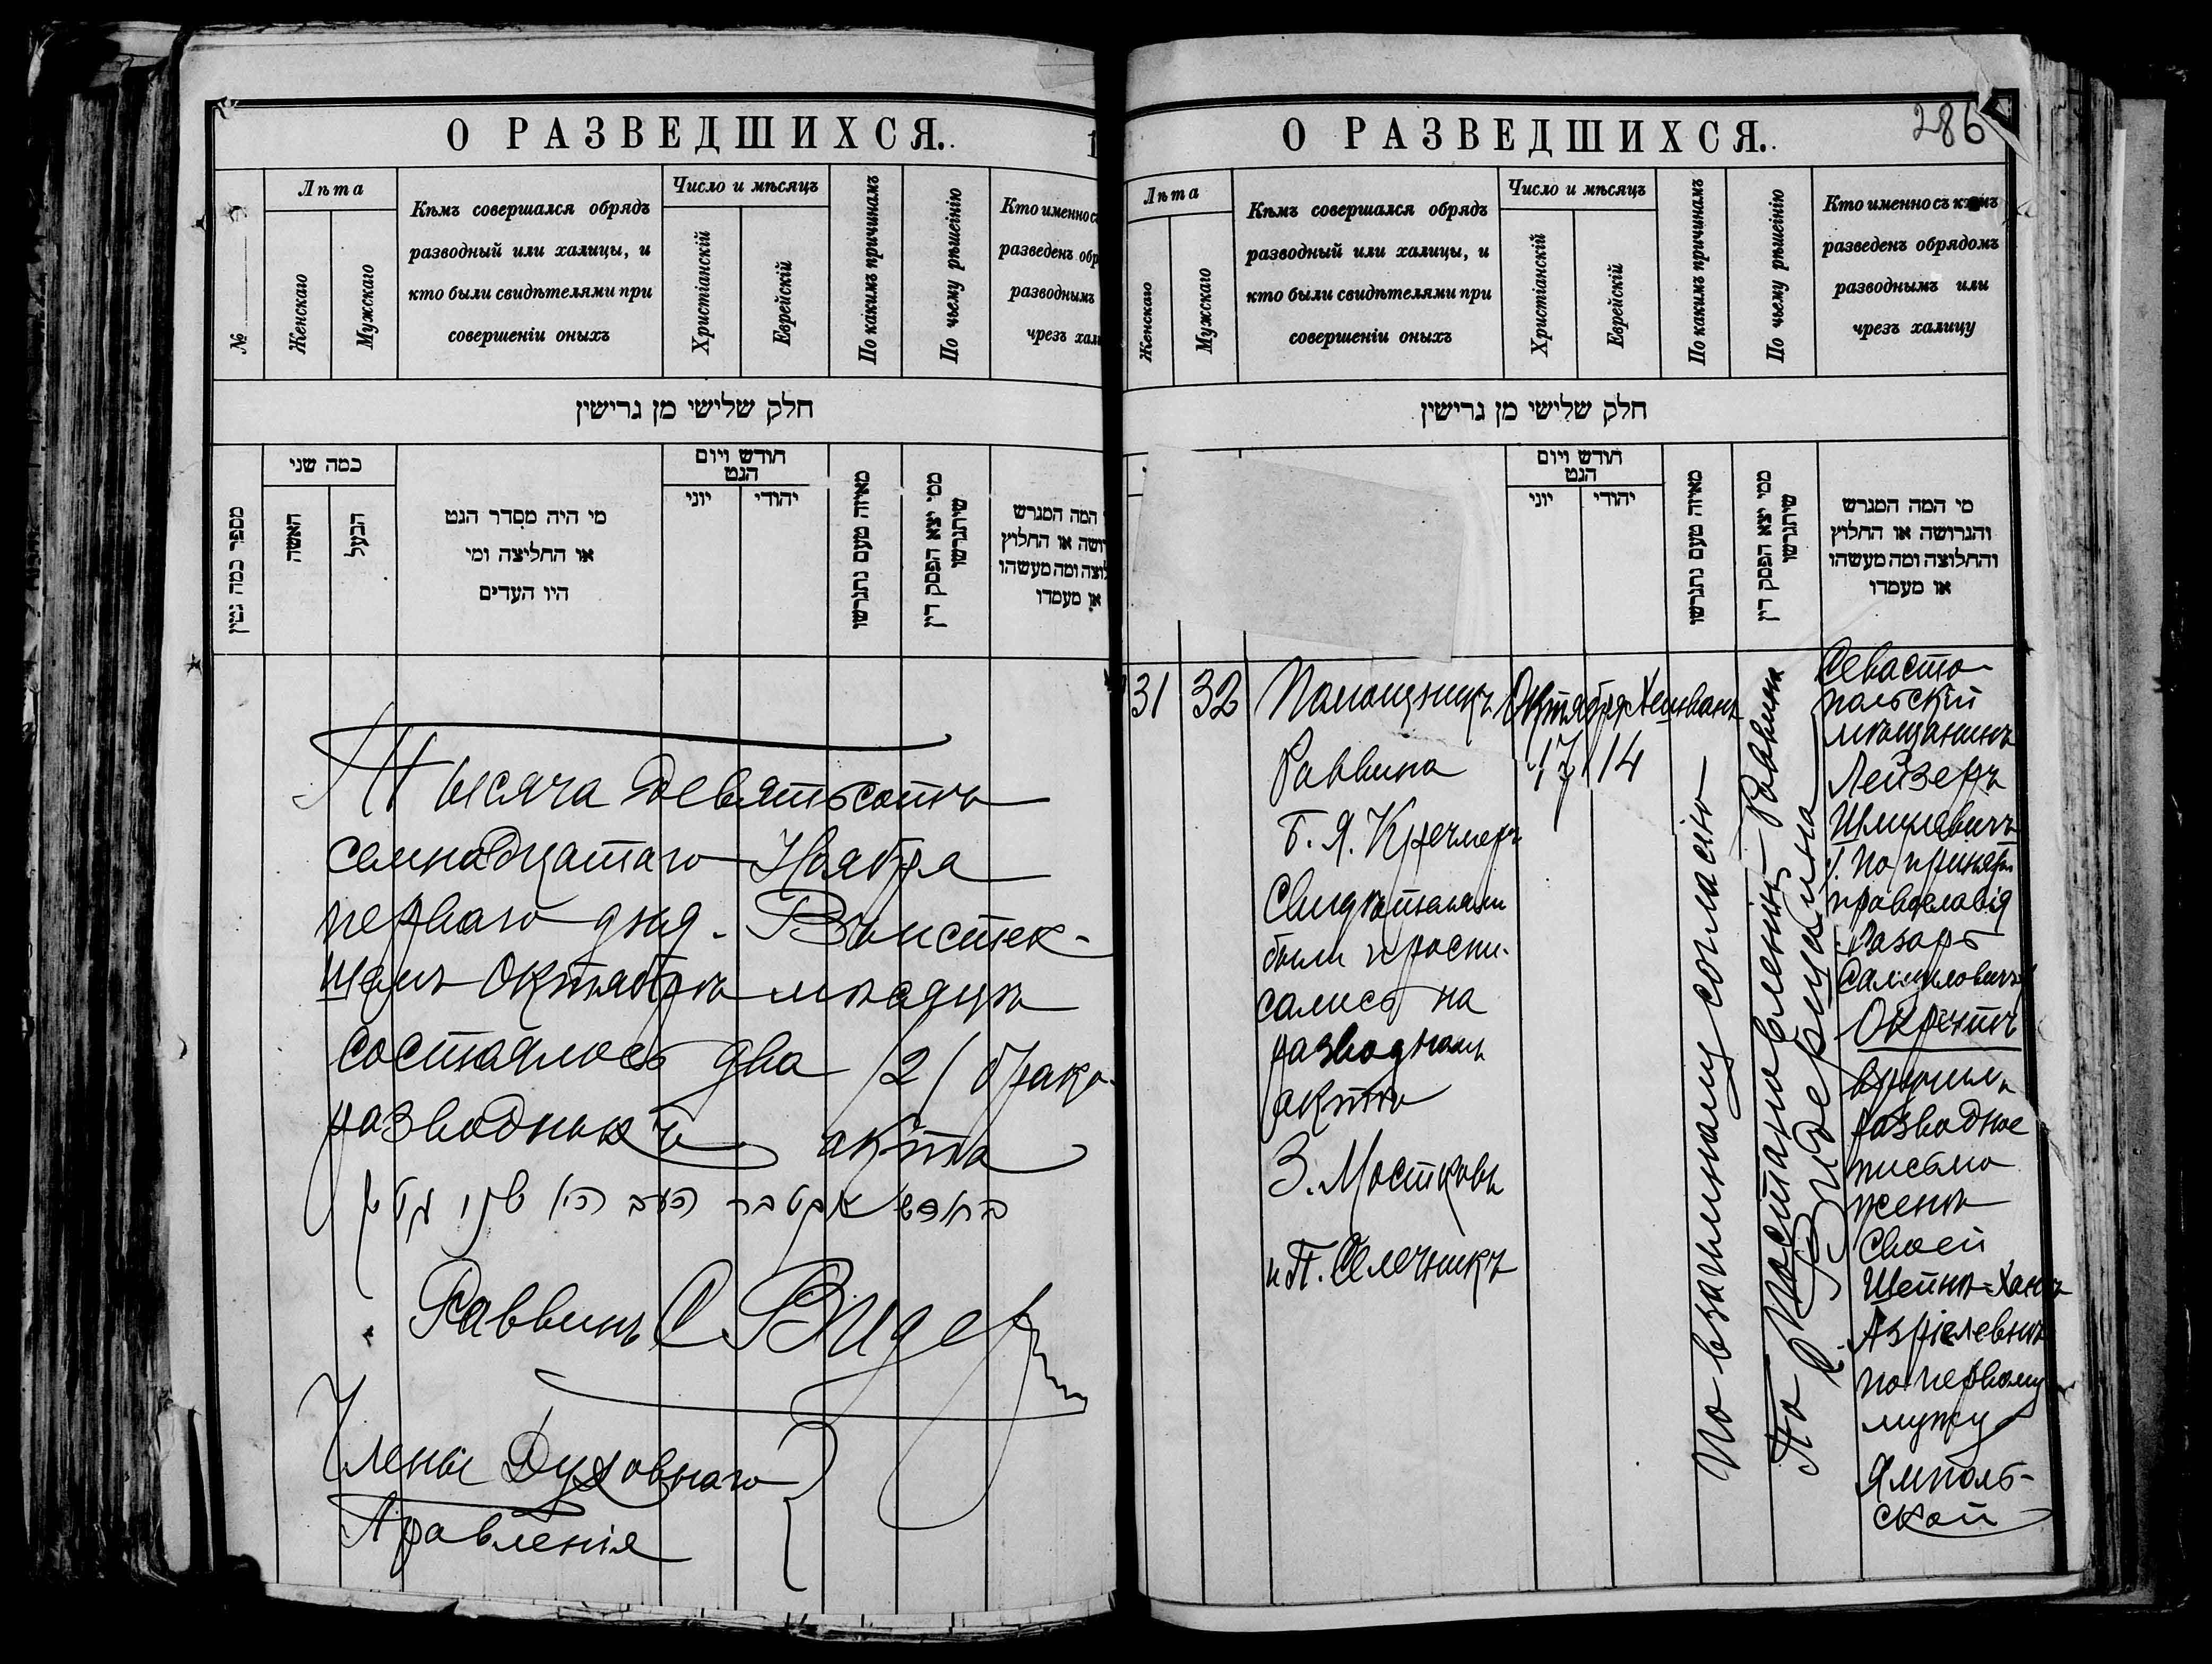 О РАЗВЕДШИХСЯ.
№
Лѣта
Женскаго
Мужскаго
Кѣмъ совершался обрядъ
разводный или халицы, и
кто были свидѣтелями при
совершеніи оныхъ
Число и мѣсяцъ
Христіанскій
Еврейскій
По какимъ причинамъ
По чьему рѣшенію
Кто именно съ
разведенъ обр
разводнымъ
чрезъ хал
חלק שלישי מן גרישין
מספר כמה גטין
כמה שני
האשה
הבעל
מי היה מסדר הגט
או החליצה ומי
היו העדים
חודש ויום
הגט
יוני
יהודי
מאיזה טעם נתגרשו
ממי יצא הפסק דין
שיתגרשו
המה המגרש
רושה או החלוץ
לוצה ומה מעשהו
או מעמדו
Тысяча девятьсотъ
семнадцатаго Ноября
перваго дня. Въ истек-
шемъ Октябрѣ мѣсяцѣ
состоялось два /2/ брако-
разводныхъ акта
Раввинъ С Видер
Члены Духовнаго
Правленія
О РАЗВЕДШИХСЯ.
286
Лѣта
Женскаго
Мужскаго
Кѣмъ совершался обрядъ
разводный или халицы, и
кто были свидѣтелями при
совершеніи оныхъ
Число и мѣсяцъ
Христіанскій
Еврейскій
По какимъ причинамъ
По чьему рѣшенію
Кто именно съ кѣмъ
разведенъ обрядомъ
разводнымъ или
чрезъ халицу
חלק שלישי מן גרישין
חודש ויום
הגט
יוני
יהודי
מאיזה טעם נתגרשו
ממי יצא הפסק דין
שיתגרשו
מי המה המגרש
והגרושה או החלוץ
והחלוצה ומה מעשהו
או מעמדו
31
32
Помощникъ
Раввина
Б. Я. Кречмеръ
Свидѣтелями
были и распи-
сались на
разводномъ
актѣ
З. Мостковъ
и П. Селечникъ
Октября
17
Хешванъ
14
По взаимному согласію
По постановленію Раввина
С. Видерщаина
Севасто-
польскій
мѣщанинъ
Лейзеръ
Шмулевичъ
/. по принятіи
православія
Лазарь
Самуиловичъ/
Окрентъ
вручилъ
разводное
письмо
женѣ
своей
Шейнѣ-Ханѣ
Азріелевнѣ
по первому
мужу
Ямполь-
ской